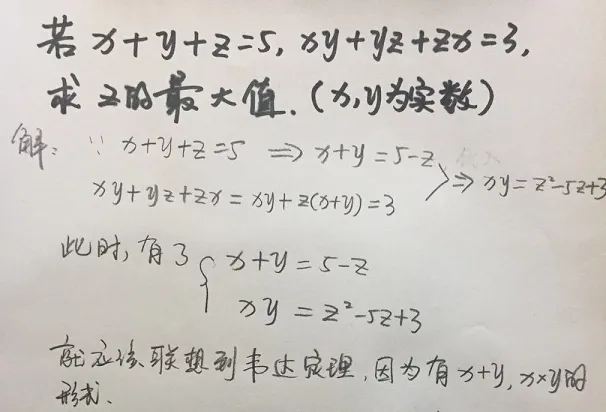 若 x+y+z=5, xy+yz+zx=3,
求 z的最大值. (x,y为实数)
解: ∵ x+y+z=5 ⇒ x+y=5-z
xy+yz+zx=xy+z(x+y)=3 ⇒ xy=z²-5z+3
此时,有了 { x+y=5-z
xy=z²-5z+3
就应该联想到韦达定理,因为有x+y, x×y的
形式.